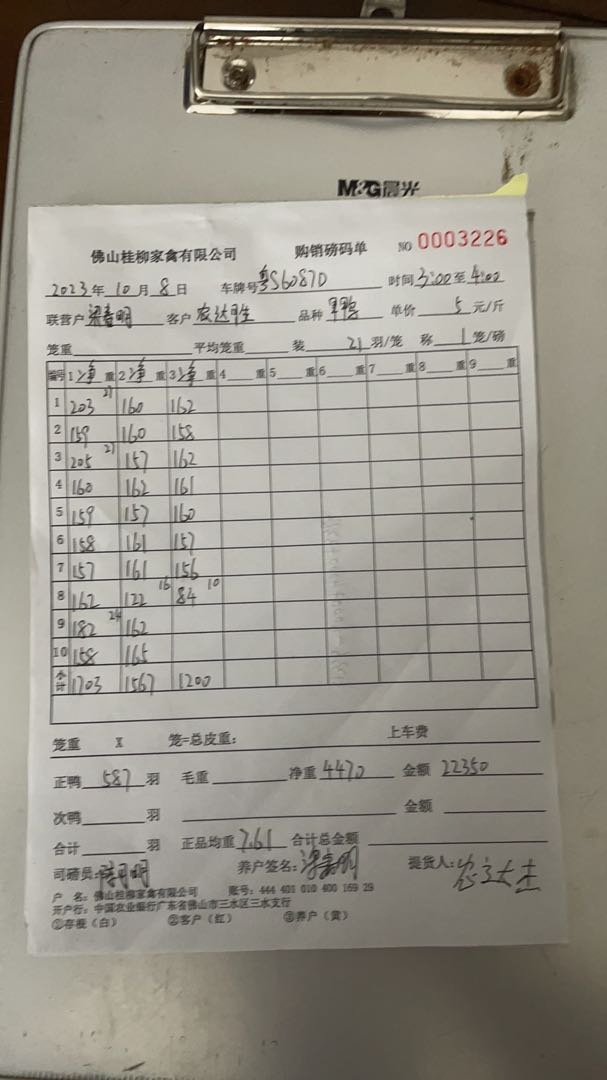 M&G晨光
佛山桂柳家禽有限公司 购销磅码单 NO 0003226
2023年 10月 8日 车牌号 粤S60870 时间 3:00 至 4:00
联营户 梁 明 客户 农达 品种 单价 5 元/斤
笼重 平均笼重 装 21 羽/笼 称 1 笼/磅
编号 1 净 重 2 净 重 3 净 重 4 重 5 重 6 重 7 重 8 重 9 重
1 203 21 160 162
2 159 160 158
3 205 21 157 162
4 160 162 161
5 159 157 160
6 158 161 157
7 157 161 156
8 162 122 16 84 10
9 182 24 162
10 158 165
合计 1703 1567 1200
笼重 X 笼=总皮重: 上车费
正鸭 587 羽 毛重 净重 4470 金额 22350
次鸭 羽 金额
合计 羽 正品均重 7.61 合计总金额
司磅员: 明 养户签名: 梁 明 提货人:
户 名: 佛山桂柳家禽有限公司 账号: 444 401 010 400 169 29
开户行: 中国农业银行广东省佛山市三水区三水支行
①存根（白） ②客户（红） ③养户（黄）